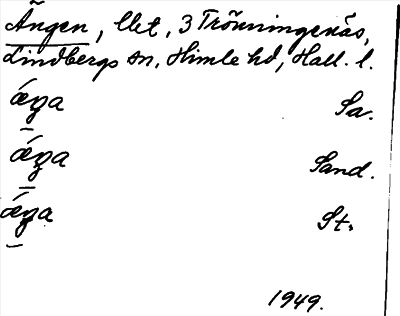 Ängen, llet, 3 Trönningenäs,
Lindbergs sn, Himle hd, Hall. l.
ǽŋa Sa.
ǽŋa Sand.
ǽŋa St.
1949.